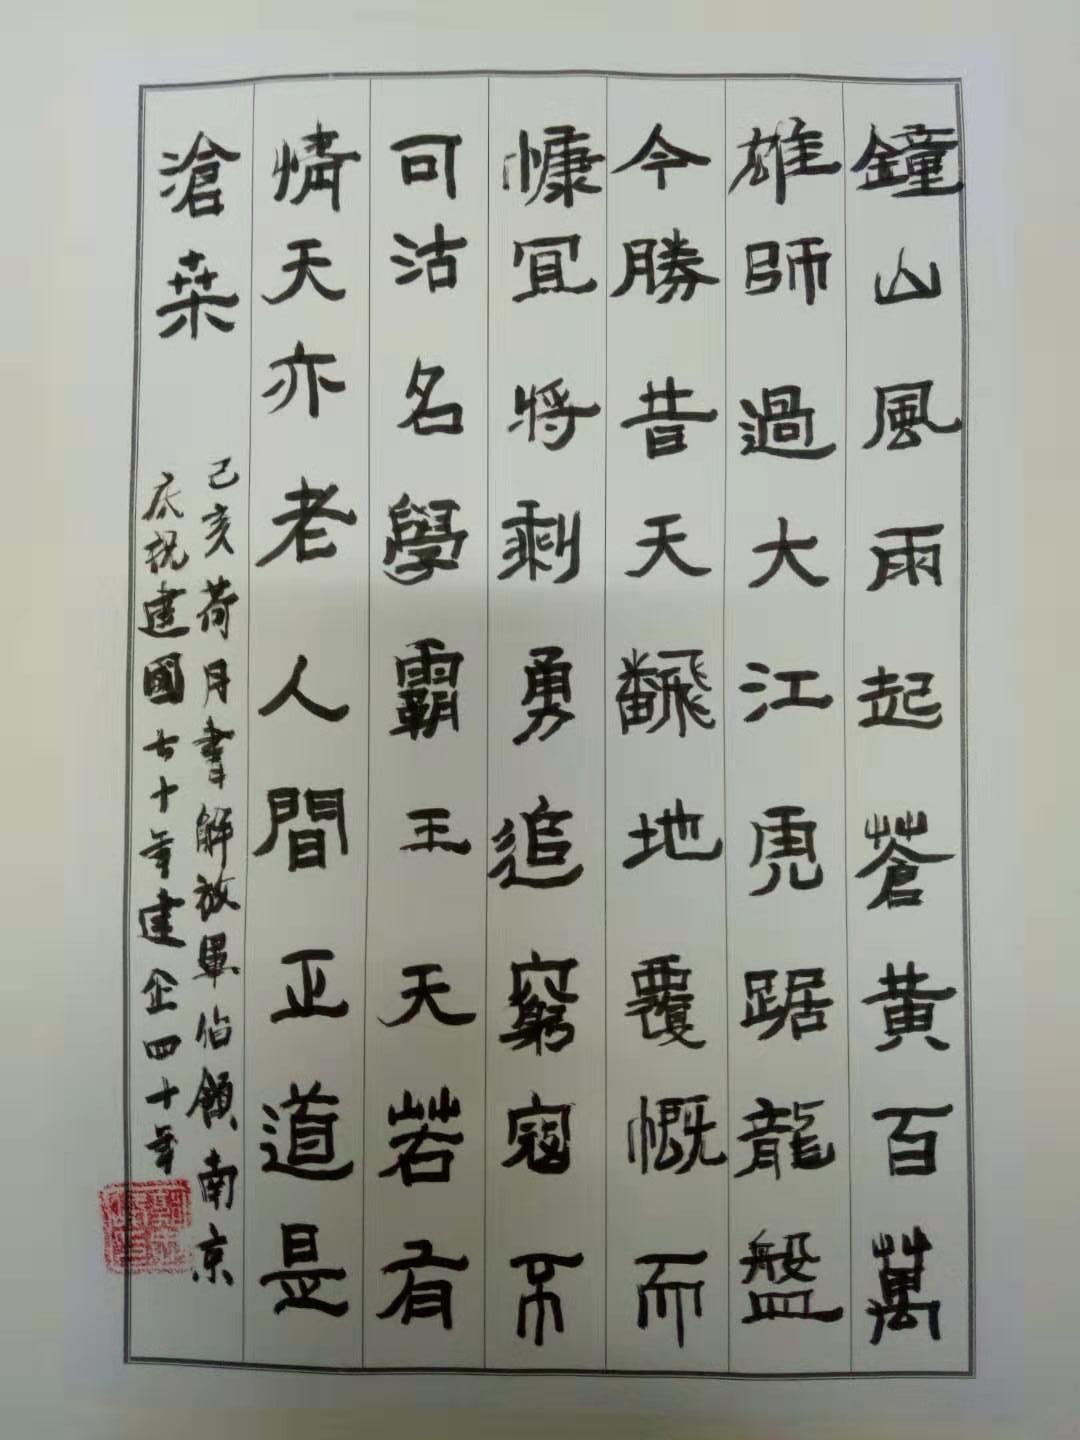 鐘山風雨起蒼黃百萬
雄師過大江虎踞龍盤
今勝昔天飜地覆慨而
慷宜將剩勇追窮寇不
可沽名學霸王天若有
情天亦老人間正道是
滄桒
己亥荷月書解放軍佔領南京
庆祝建國七十年建企四十年